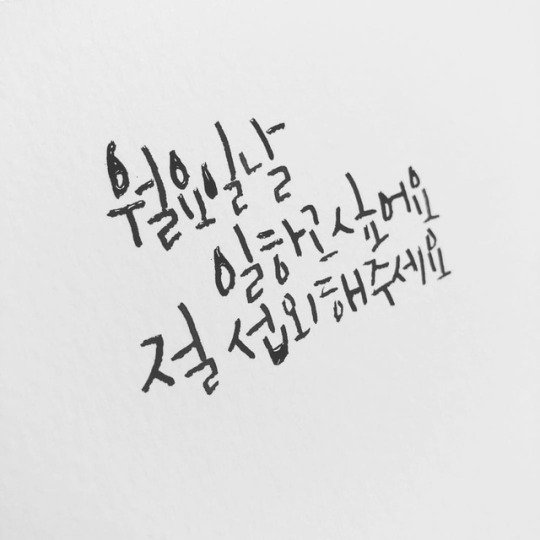 월요일날
일하고 싶어요
절 섭외해주세요